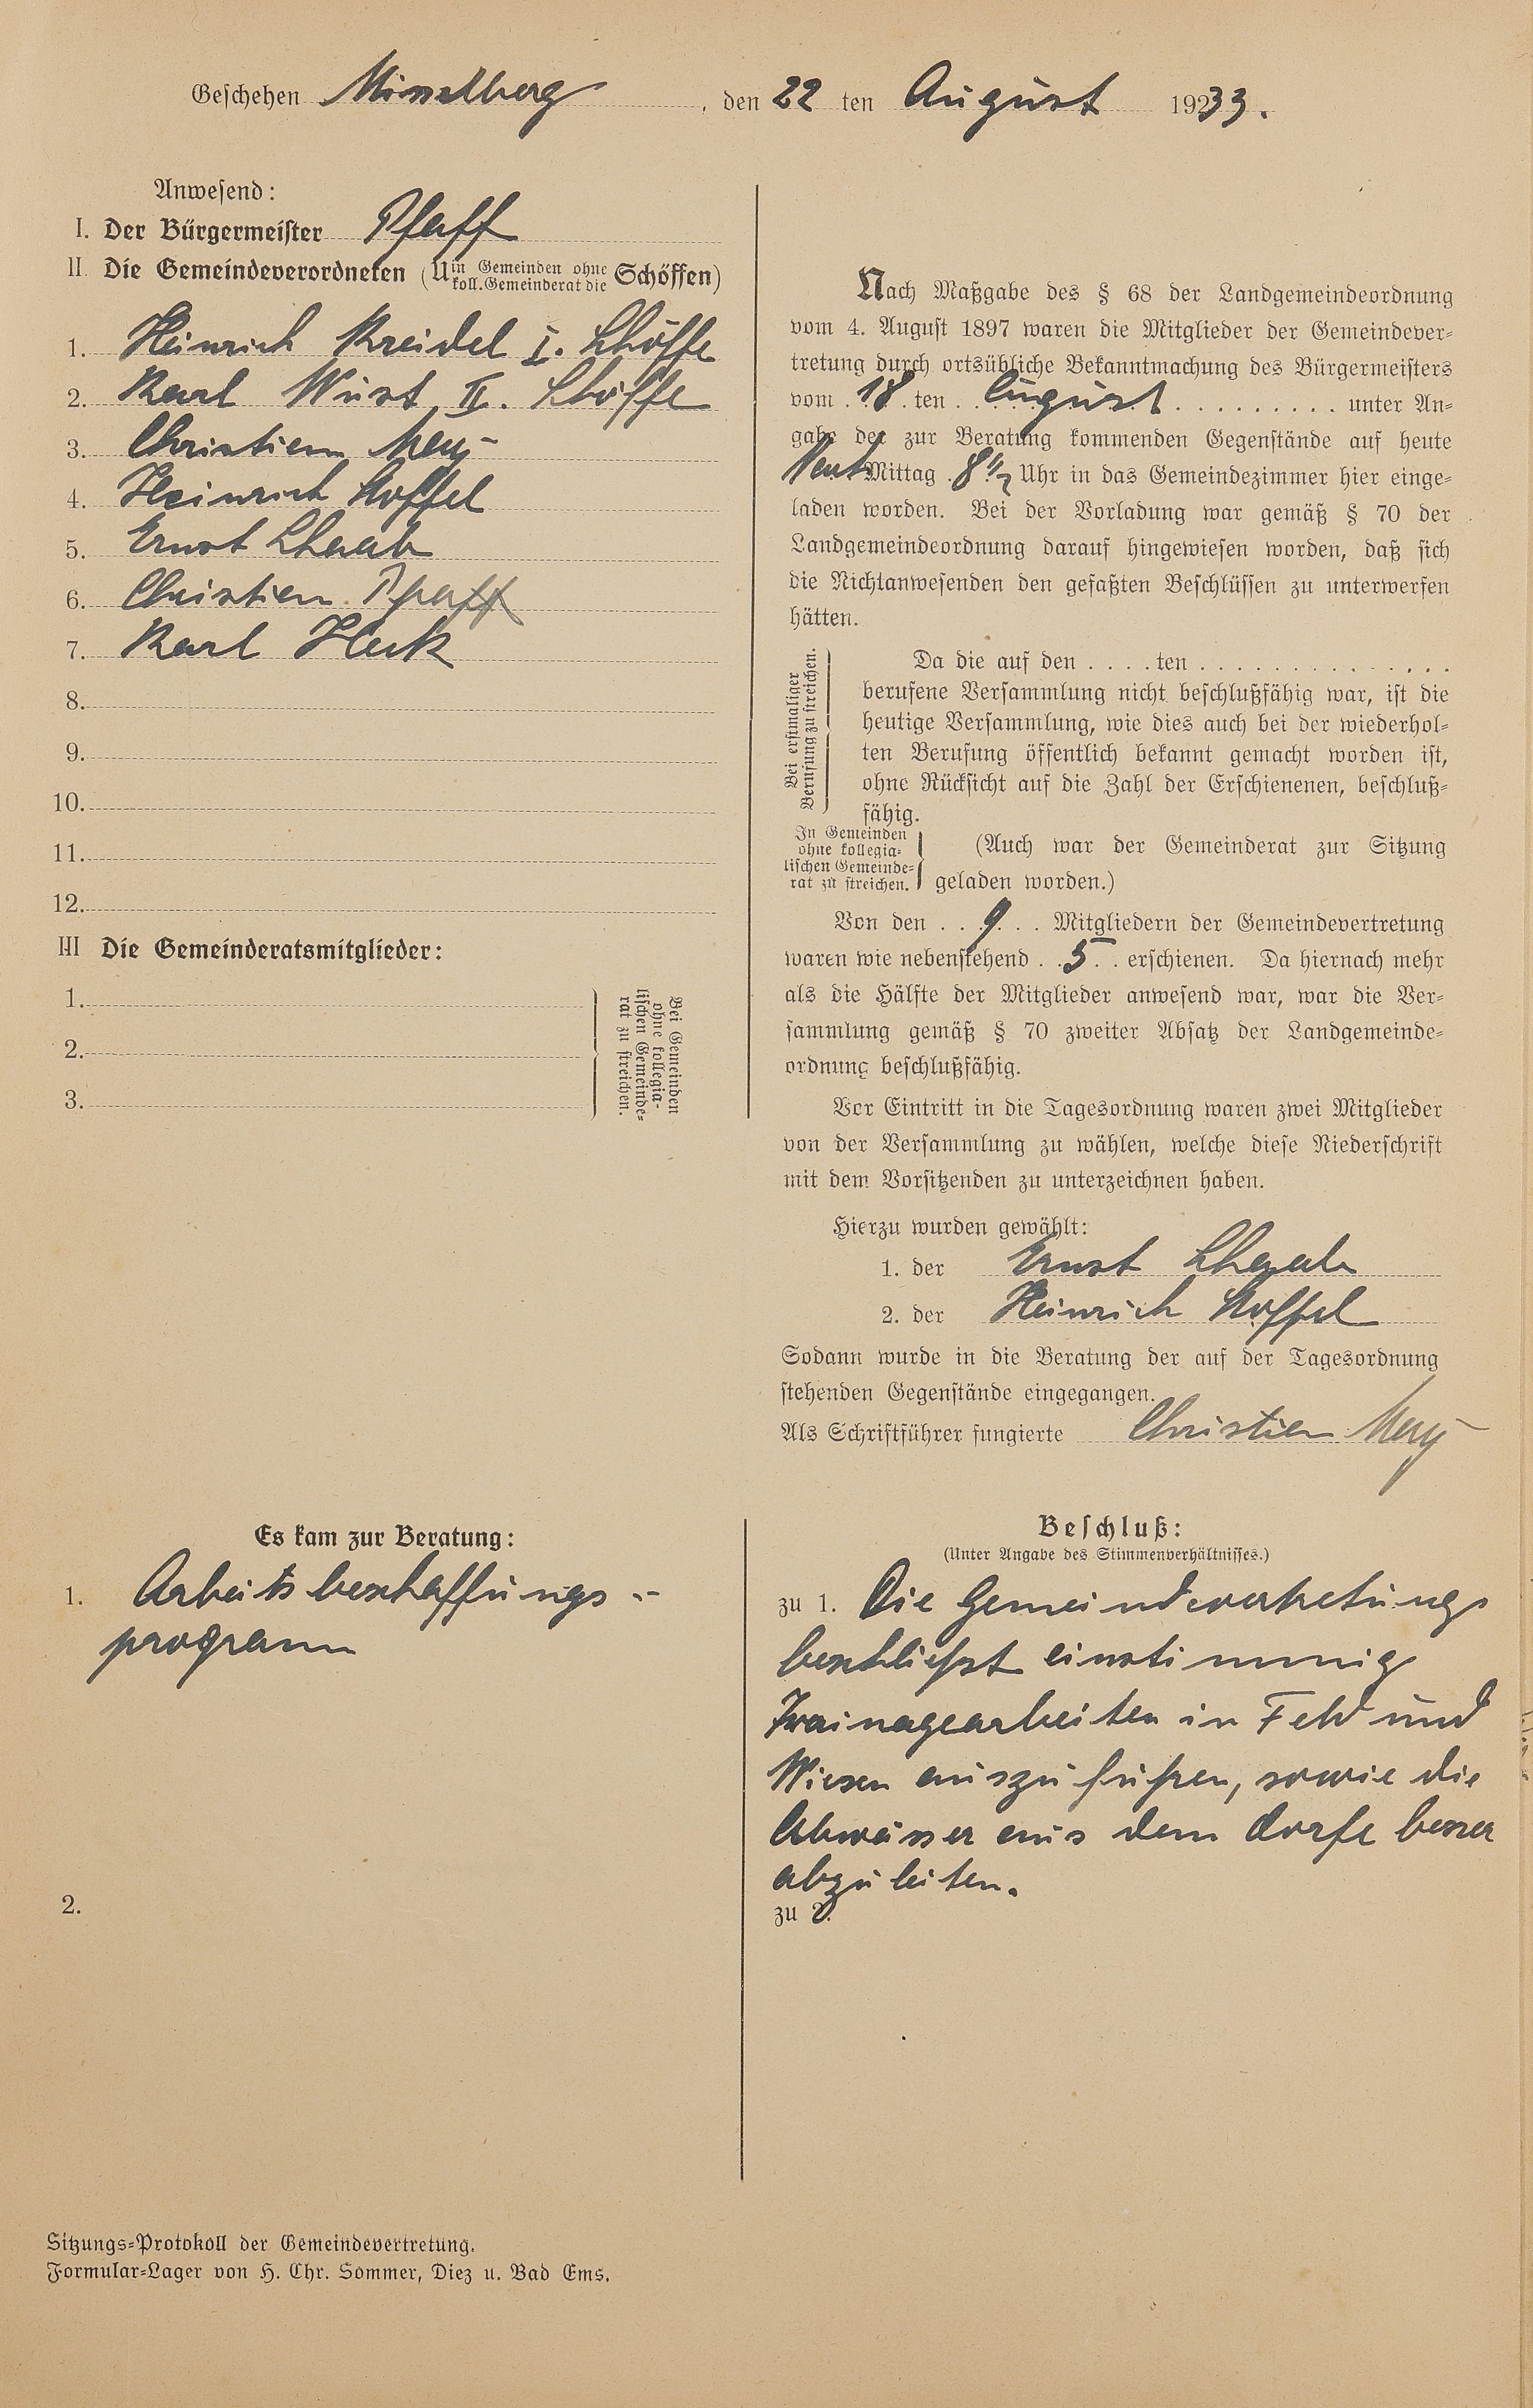 Geschehen Misselberg, den 22 ten August 1933.
Anwesend:
I. Der Bürgermeister Pfaff
II. Die Gemeindeverordneten (U in Gemeinden ohne koll. Gemeinderat die Schöffen)
1. Heinrich Kreidel I. Schöffe
2. Karl Wüst II. Schöffe
3. Christian
4. Heinrich Stoffel
5. Ernst Schaab
6. Christian Pfaff
7. Karl Heck
8.
9.
10.
11.
12.
III Die Gemeinderatsmitglieder:
1.
2.
3.
Bei Gemeinden
ohne kollegia-
lischen Gemeinde-
rat zu streichen.
Nach Maßgabe des § 68 der Landgemeindeordnung
vom 4. August 1897 waren die Mitglieder der Gemeindever-
tretung durch ortsübliche Bekanntmachung des Bürgermeisters
vom 18 ten August unter An-
gabe der zur Beratung kommenden Gegenstände auf heute
Mittag 8 1/2 Uhr in das Gemeindezimmer hier einge-
laden worden. Bei der Vorladung war gemäß § 70 der
Landgemeindeordnung darauf hingewiesen worden, daß sich
die Nichtanwesenden den gefaßten Beschlüssen zu unterwerfen
hätten.
Bei erstmaliger
Berufung zu streichen.
Da die auf den . . . . ten . . . . . . . . . . . . . .
berufene Versammlung nicht beschlußfähig war, ist die
heutige Versammlung, wie dies auch bei der wiederhol-
ten Berufung öffentlich bekannt gemacht worden ist,
ohne Rücksicht auf die Zahl der Erschienenen, beschluß-
fähig.
In Gemeinden
ohne kollegia-
lischen Gemeinde-
rat zu streichen.
(Auch war der Gemeinderat zur Sitzung
geladen worden.)
Von den . . 9 . . Mitgliedern der Gemeindevertretung
waren wie nebenstehend . . 5 . . erschienen. Da hiernach mehr
als die Hälfte der Mitglieder anwesend war, war die Ver-
sammlung gemäß § 70 zweiter Absatz der Landgemeinde-
ordnung beschlußfähig.
Vor Eintritt in die Tagesordnung waren zwei Mitglieder
von der Versammlung zu wählen, welche diese Niederschrift
mit dem Vorsitzenden zu unterzeichnen haben.
Hierzu wurden gewählt:
1. der Ernst Schaab
2. der Heinrich Stoffel
Sodann wurde in die Beratung der auf der Tagesordnung
stehenden Gegenstände eingegangen.
Als Schriftführer fungierte Christian
Es kam zur Beratung:
1. Arbeitsbeschaffungs-
programm
2.
Beschluß:
(Unter Angabe des Stimmenverhältnisses.)
zu 1. Die Gemeindevertretung
beschließt einstimmig
Drainagearbeiten in Feld und
Wiesen auszuführen, sowie die
Abwässer aus dem Dorfe besser
abzuleiten.
zu 2.
Sitzungs-Protokoll der Gemeindevertretung.
Formular-Lager von H. Chr. Sommer, Diez u. Bad Ems.